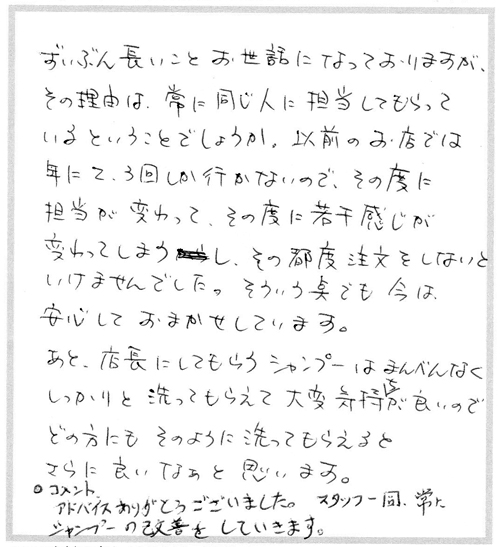 ずいぶん長いこと お世話になっておりますが、
その理由は、常に同じ人に担当してもらって
いるということでしょうか。以前のお店では
年に2、3回しか行かないので、その度に
担当が変わって、その度に若干感じが
変わってしまうし、その都度注文をしないと
いけませんでした。そういう点でも今は、
安心しておまかせしています。
あと、店長にしてもらうシャンプーはまんべんなく
しっかりと洗ってもらえて大変気持ちが良いので
どの方にもそのように洗ってもらえると
さらに良いなぁと思います。
○コメント、
アドバイスありがとうございました。スタッフ一同、常に
シャンプーの改善をしていきます。